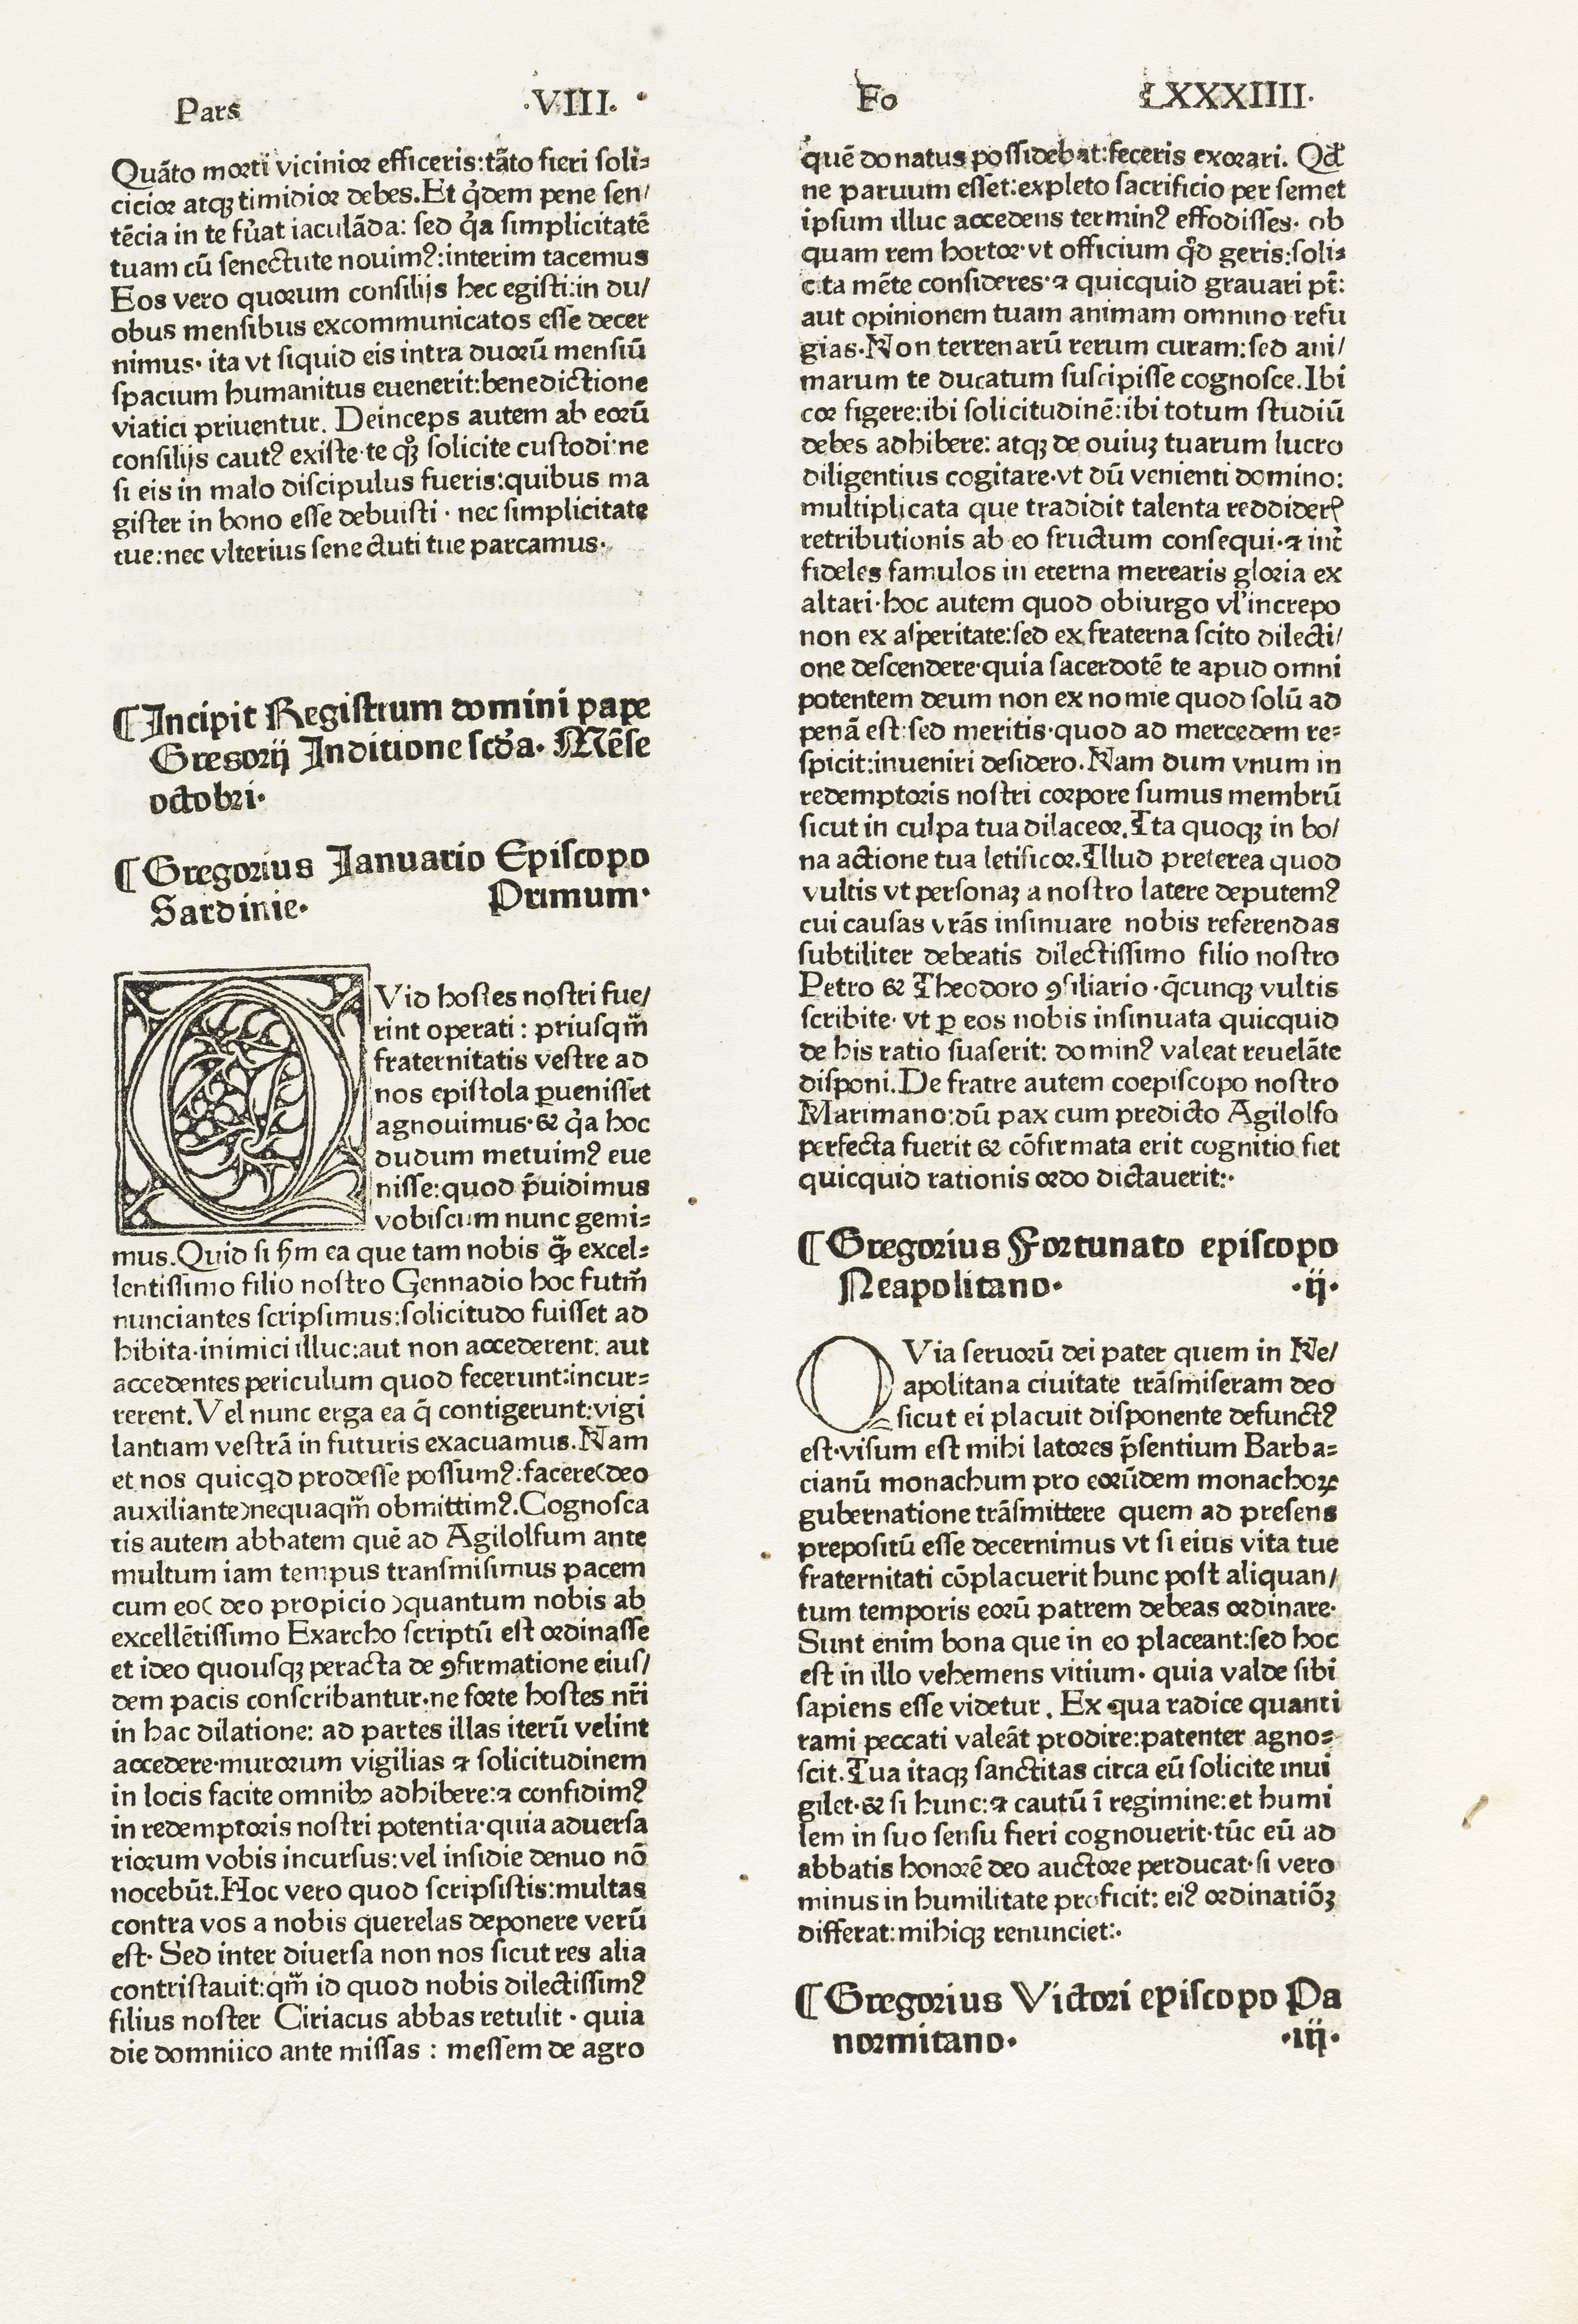 Pars .VIII. Fo LXXXIIII.
Quãto morti vicinior efficeris:tãto fieri soli⸗
cicior atqꝫ timidior debes.Et q̇dem pene sen/
tẽcia in te fu̓at iaculãda: sed q̇a simplicitatẽ
tuam cũ senectute nouimꝰ:interim tacemus
Eos vero quorum consilijs hec egisti:in du/
obus mensibus excommunicatos esse decer
nimus· ita vt siquid eis intra duorũ mensiũ
spacium humanitus euenerit:benedictione
viatici priuentur. Deinceps autem ab eorũ
consilijs cautꝰ existe·te qꝫ̊ solicite custodi·ne
si eis in malo discipulus fueris:quibus ma
gister in bono esse debuisti · nec simplicitate
tue:nec vlterius senectuti tue parcamus·
¶Incipit Registrum domini pape
Gregorij Inditione scďa· Mẽse
octobri·
¶Gregorius Ianuario Episcopo
Sardinie· Primum·
QVid hostes nostri fue/
rint operati : priusqm̃
fraternitatis vestre ad
nos epistola ꝑuenisset
agnouimus·& q̇a hoc
dudum metuimꝰ eue
nisse:quod p̃uidimus
vobiscum nunc gemi⸗
mus.Quid si ẖm ea que tam nobis q̃ꝫ excel⸗
lentissimo filio nostro Gennadio hoc futm̃
nunciantes scripsimus:solicitudo fuisset ad
hibita·inimici illuc:aut non accederent: aut
accedentes periculum quod fecerunt:incur⸗
rerent.Vel nunc erga ea q̃ contigerunt:vigi
lantiam vestrã in futuris exacuamus.Nam
et nos quicqd prodesse possumꝰ:facere(deo
auxiliante)nequaqm̃ obmittimꝰ.Cognosca
tis autem abbatem quẽ ad Agilolfum ante
multum iam tempus transmisimus pacem
cum eo( deo propicio )quantum nobis ab
excellẽtissimo Exarcho scriptũ est ordinasse
et ideo quousqꝫ peracta de ꝯfirmatione eius/
dem pacis conscribantur·ne forte hostes nr̃i
in hac dilatione: ad partes illas iterũ velint
accedere·murorum vigilias ⁊ solicitudinem
in locis facite omnibꝰ adhibere:⁊ confidimꝰ
in redemptoris nostri potentia·quia aduersa
riorum vobis incursus:vel insidie denuo nõ
nocebũt.Hoc vero quod scripsistis:multas
contra vos a nobis querelas deponere verũ
est· Sed inter diuersa non nos sicut res alia
contristauit:qm̃ id quod nobis dilectissimꝰ
filius noster Ciriacus abbas retulit · quia
die domniico ante missas : messem de agro
quẽ donatus possidebat:feceris exorari. Qď
ne paruum esset:expleto sacrificio per semet
ipsum illuc accedens terminꝰ effodisses· ob
quam rem hortor·vt officium qďd geris:soli⸗
cita mẽte consideres·⁊ quicquid grauari pt̃:
aut opinionem tuam animam omnino refu
gias·Non terrenarũ rerum curam:sed ani/
marum te ducatum suscipisse cognosce.Ibi
cor figere:ibi solicitudinẽ:ibi totum studiũ
debes adhibere: atqꝫ de ouiuꝫ tuarum lucro
diligentius cogitare·vt dũ venienti domino:
multiplicata que tradidit talenta reddiderꝭ
retributionis ab eo fructum consequi·⁊ int̃
fideles famulos in eterna merearis gloria ex
altari·hoc autem quod obiurgo vl̓ increpo
non ex asperitate:sed ex fraterna scito dilecti/
one descendere·quia sacerdotẽ te apud omni
potentem deum non ex nomie quod solũ ad
penã est:sed meritis·quod ad mercedem re⸗
spicit:inueniri desidero.Nam dum vnum in
redemptoris nostri corpore sumus membrũ
sicut in culpa tua dilaceor.Ita quoqꝫ in bo/
na actione tua letificor.Illud preterea quod
vultis vt personaꝫ a nostro latere deputemꝰ
cui causas vrãs insinuare nobis referendas
subtiliter debeatis dilectissimo filio nostro
Petro & Theodoro ꝯsiliario ·q̃cunqꝫ vultis
scribite· vt ꝑ eos nobis insinuata quicquid
de his ratio suaserit: dominꝰ valeat reuelãte
disponi.De fratre autem coepiscopo nostro
Marimano:dũ pax cum predicto Agilolfo
perfecta fuerit & cõfirmata erit cognitio fiet
quicquid rationis ordo dictauerit:·
¶Gregorius Fortunato episcopo
Neapolitano· ·ij·
QVia seruorũ dei pater quem in Ne/
apolitana ciuitate trãsmiseram deo
sicut ei placuit disponente defunctꝰ
est·visum est mihi latores p̃sentium Barba⸗
cianũ monachum pro eorũdem monachoꝝ
gubernatione trãsmittere quem ad presens
prepositũ esse decernimus vt si eius vita tue
fraternitati cõplacuerit hunc post aliquan/
tum temporis eorũ patrem debeas ordinare·
Sunt enim bona que in eo placeant:sed hoc
est in illo vehemens vitium· quia valde sibi
sapiens esse videtur . Ex qua radice quanti
rami peccati valeãt prodire:patenter agno⸗
scit.Tua itaqꝫ sanctitas circa eũ solicite inui
gilet·& si hunc:⁊ cautũ ĩ regimine:et humi
lem in suo sensu fieri cognouerit·tũc eũ ad
abbatis honorẽ deo auctore perducat·si vero
minus in humilitate proficit: eiꝰ ordinatiõꝫ
differat:mihiqꝫ renunciet:·
¶Gregorius Victori episcopo Pa
normitano· ·iij·